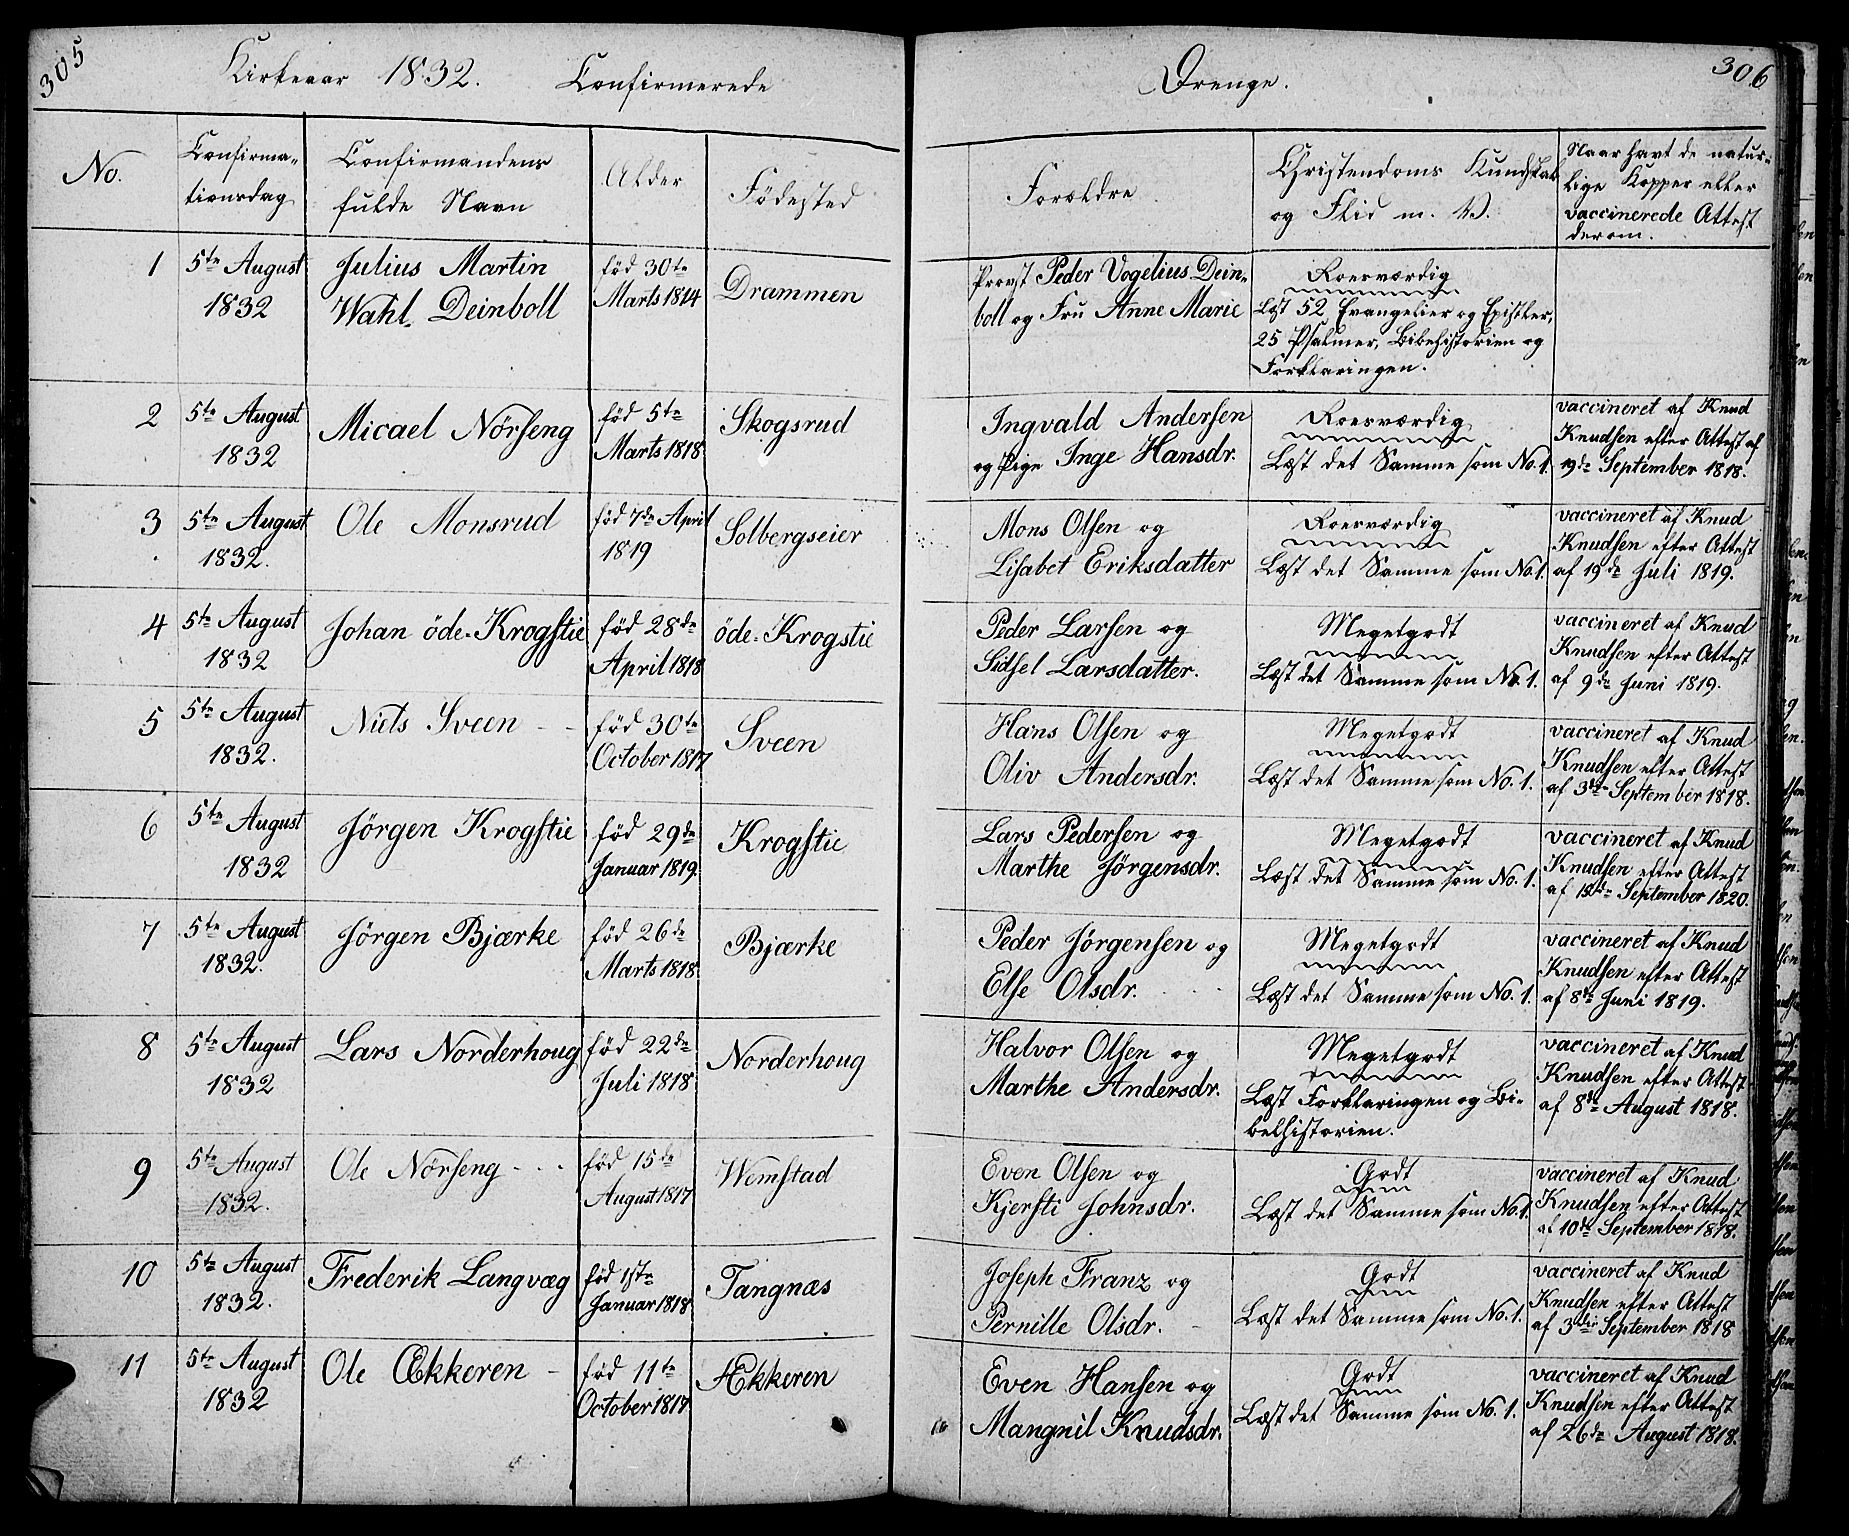 305
Kirkeaar 1832. Confirmerede
Drenge.
306
No.
Confirma-
tionsdag
Confirmandens
fulde Navn
Alder
Födested
Forældre
Christendoms Kundskab
og Flid m. V.
Naar havt de natur-
lige Kopper eller
vaccinerede Attest
derom.
1
5te August
1832
Julius Martin
Wahl Deinboll
föd 30te
Marts 1814
Drammen
Provst Peder Vogelius Dein-
boll og Fru Anne Marie
Roesværdig
Læst 52 Evangelier og Epistler,
25 Psalmer, Bibelhistorien og
Forklaringen.
2
5te August
1832
Micael Nörseng
föd 5te
Marts 1818
Skogsrud
Ingvald Andersen
og Pige Inge Hansdr.
Roesværdig
Læst det Samme som No. 1.
vaccineret af Knud
Knudsen efter Attest af
19de September 1818.
3
5te August
1832.
Ole Monsrud
föd 7de April
1819
Solbergseier
Mons Olsen og
Lisabet Eriksdatter
Roesværdig
Læst det Samme som No. 1.
vaccineret af Knud
Knudsen efter Attest
af 19de Juli 1819.
4
5te August
1832
Johan öde-Krogstie
föd 28de
April 1818
öde-Krogstie
Peder Larsen og
Sidsel Larsdatter.
Megetgodt
Læst det Samme som No 1.
vaccineret af Knud
Knudsen efter Attest
af 9de Juni 1819.
5
5te August
1832.
Niels Sveen - -
föd 30te
October 1817
Sveen
Hans Olsen og
Oliv Andersdr.
Megetgodt
Læst det Samme som No. 1.
vaccineret af Knud
Knudsen efter Attest
af 3die September 1818.
6
5te August
1832
Jörgen Krogstie
föd 29de
Januar 1819.
Krogstie
Lars Pedersen og
Marthe Jörgensdr.
Megetgodt
Læst det Samme som No. 1.
vaccineret af Knud
Knudsen efter Attest
af September 1820.
7
5te August
1832.
Jörgen Bjærke
föd 26de
Marts 1818.
Bjærke
Peder Jörgensen og
Else Olsdr.
Megetgodt
Læst det Samme som No. 1.
vaccineret af Knud
Knudsen efter Attest
af 8de Juni 1819.
8
5te August
1832
Lars Norderhoug
föd 22de
Juli 1818
Norderhoug
Halvor Olsen og
Marthe Andersdr.
Megetgodt
Læst Forklaringen og Bi-
belhistorien.
vaccineret af Knud
Knudsen efter Attest
af 8de August 1818.
9
5te August
1832.
Ole Nörseng - - -
föd 15de
August 1817
Wemstad
Even Olsen og
Kjersti Johnsdr.
Godt
Læst det Samme som No. 1.
vaccineret af Knud
Knudsen efter Attest
af 10de September 1818.
10
5te August
1832.
Frederik Langvæg
föd 1ste
Januar 1818
Tangnæs
Joseph Franz og
Pernille Olsdr. -
Godt
Læst det Samme som No. 1.
vaccineret af Knud
Knudsen efter Attest
af 3die September 1818
11
5te August
1832
Ole Ækkeren -
föd 11te
October 1817
Ækkeren
Even Hansen og
Mangnil Knudsdr.
Godt
Læst det Samme som No. 1.
vaccineret af Knud
Knudsen efter Attest
af 26de August 1818.